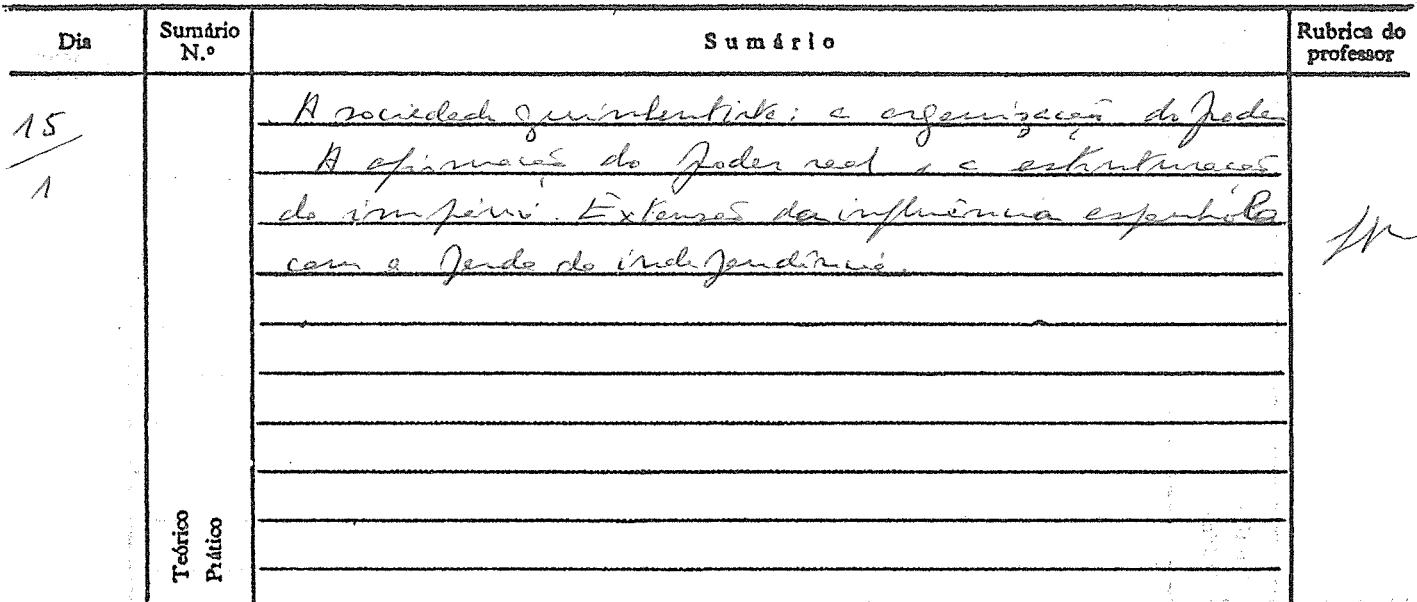 Dia
Sumário N.º
Sumário
Rubrica do professor
15/1
A sociedade quinhentista: a organização do poder
A afirmação do poder real, a estruturação
do império. Extensão da influência espanhola
com a perda da independência.
Teórico
Prático